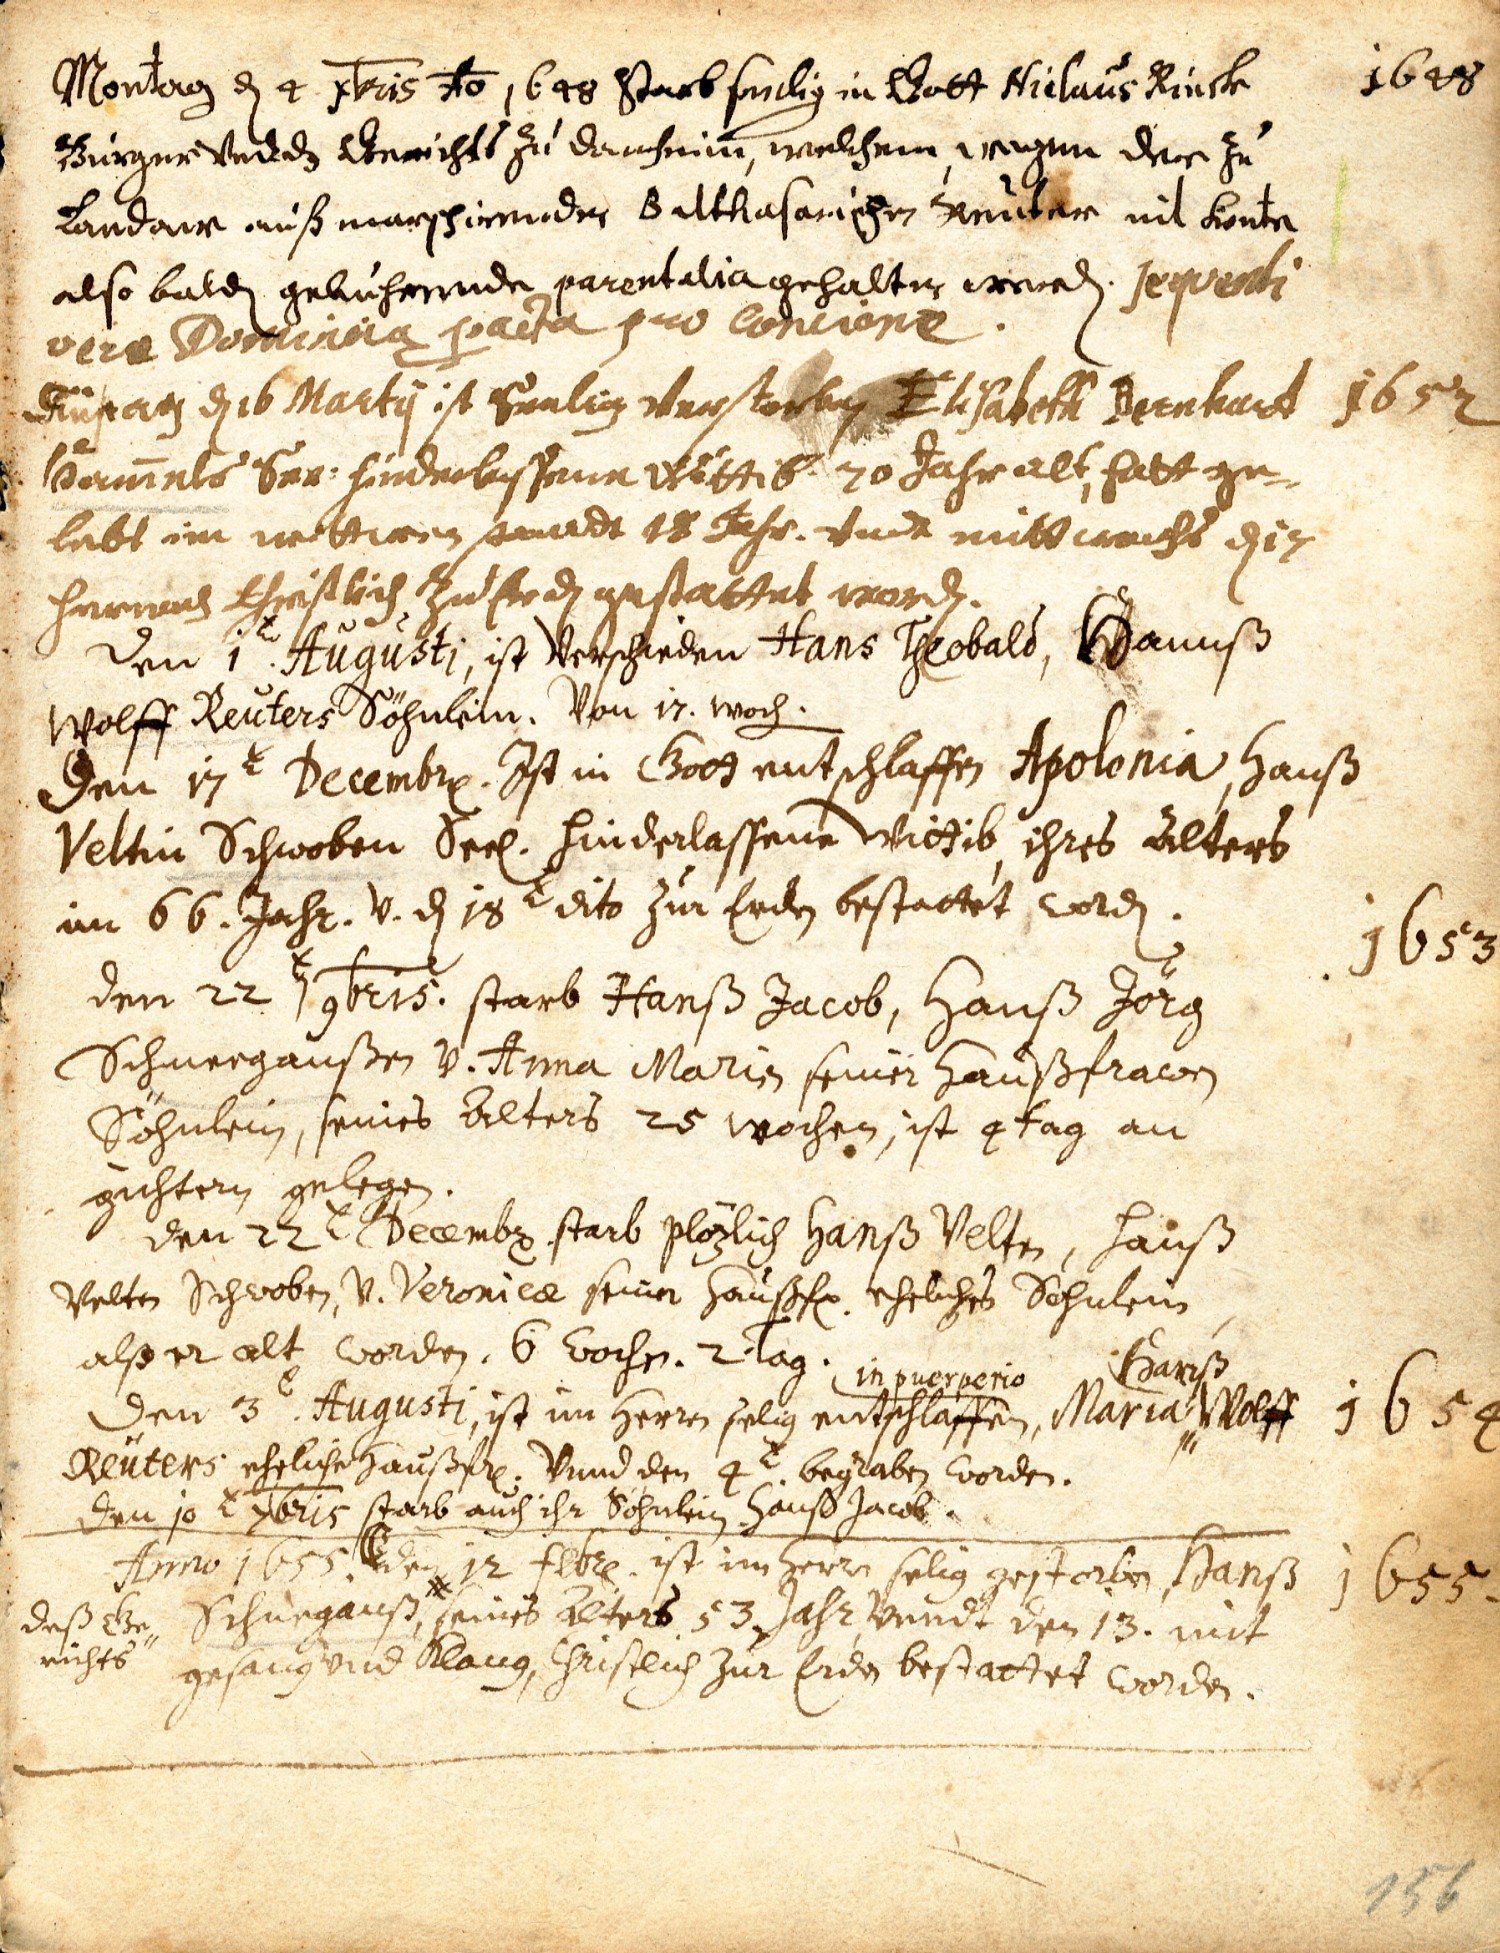 Montag d 4 xbris Ao 1648 Starb seelig in Gott Niclaus Rinck 1648
Burger und des Gerichts zu damheim, welchem wegen der zu
Landaw auß marschirender Balthasarischen Reuter nit konte
also bald gebührende parentalia gehalten werd. sequenti
vero Dominica facta pro concione.
Dinstag d 16 Martij ist Seelig verstorben Elisabeth Bernhart 1652
Seel: hinderlassene Wittib 70 Jahr alt, hatt ge-
lebt im wittwen standt 18 Jahr. Undt mittwochs d 17
hernach christlich zu erd gestattet word.
Den 1t. Augusti, ist Verschieden Hans Theobald, Hannß
Wolff Reuters Söhnlein. Von 17. woch.
Den 17t Decembr. Ist in Gott entschlaffen Apolonia, Hanß
Veltin Schwoben Seel. hinderlassene Wittib, ihres Alters
im 66. Jahr. v. d 18t dito zur Erden bestattet word.
1653
den 22t 9bris. starb Hanß Jacob, Hanß Jörg
Schneeganßen v. Anna Marien seiner Haußfrawen
Söhnlein, seines Alters 25 wochen, ist 4 tag an
gichtern gelegen.
den 22t Decembr. starb plözlich Hanß Velten, Hanß
Velten Schwoben, v. Veronicæ seiner Haußfr. eheliches Söhnlein,
alß er alt worden. 6 Woche. 2 Tag.
in puerperio Hanß
Den 3t. Augusti, ist im Herrn selig entschlaffen, Maria Wolff 1654
Reüters eheliche Haußfr. Vnnd den 4t. begraben worden.
den 10t xbris starb auch ihr Söhnlein Hanß Jacob.
Anno 1655. den 12 Febr. ist im Herrn selig gestorben Hanß 1655.
deß Ge- Schneeganß, seines Alters 53 Jahr, Vnndt den 13. mit
richts gesang vnd Klang, Christlich zur Erden bestattet worden.
156